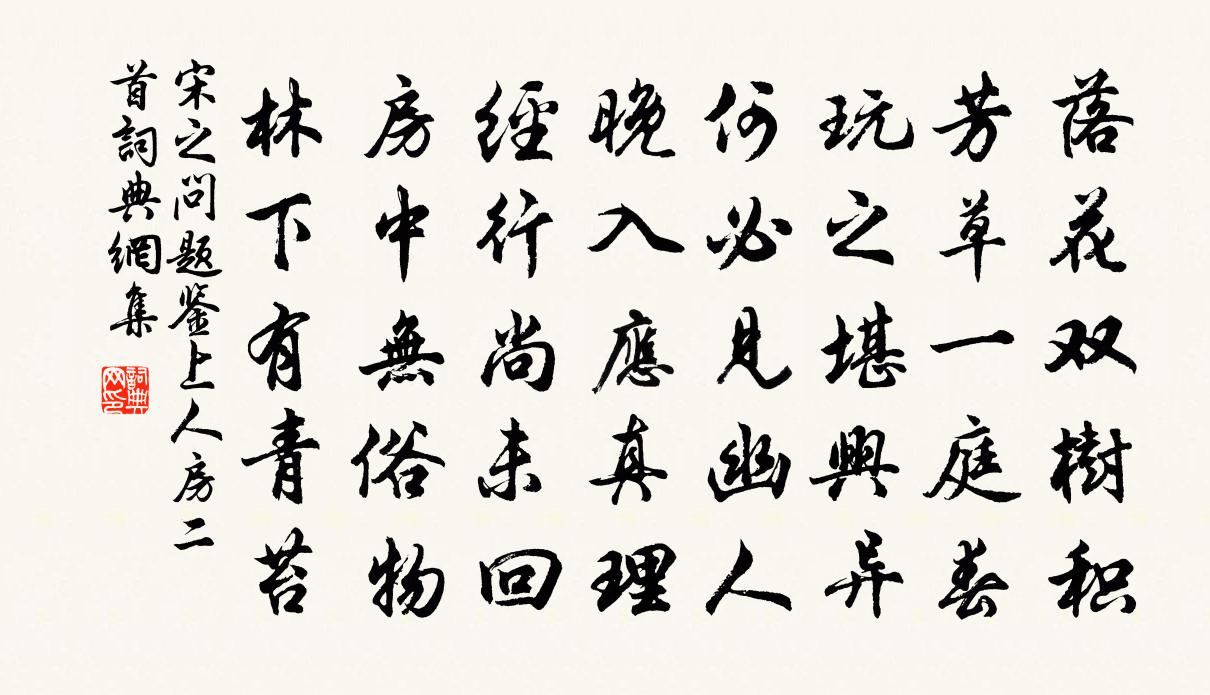 落花双樹积
芳草一庭春
玩之堪興异
何必見幽人
晚入應真理
經行尚未回
房中無俗物
林下有青苔
宋之问题鉴上人房二
首詞典網集
詞典
网印